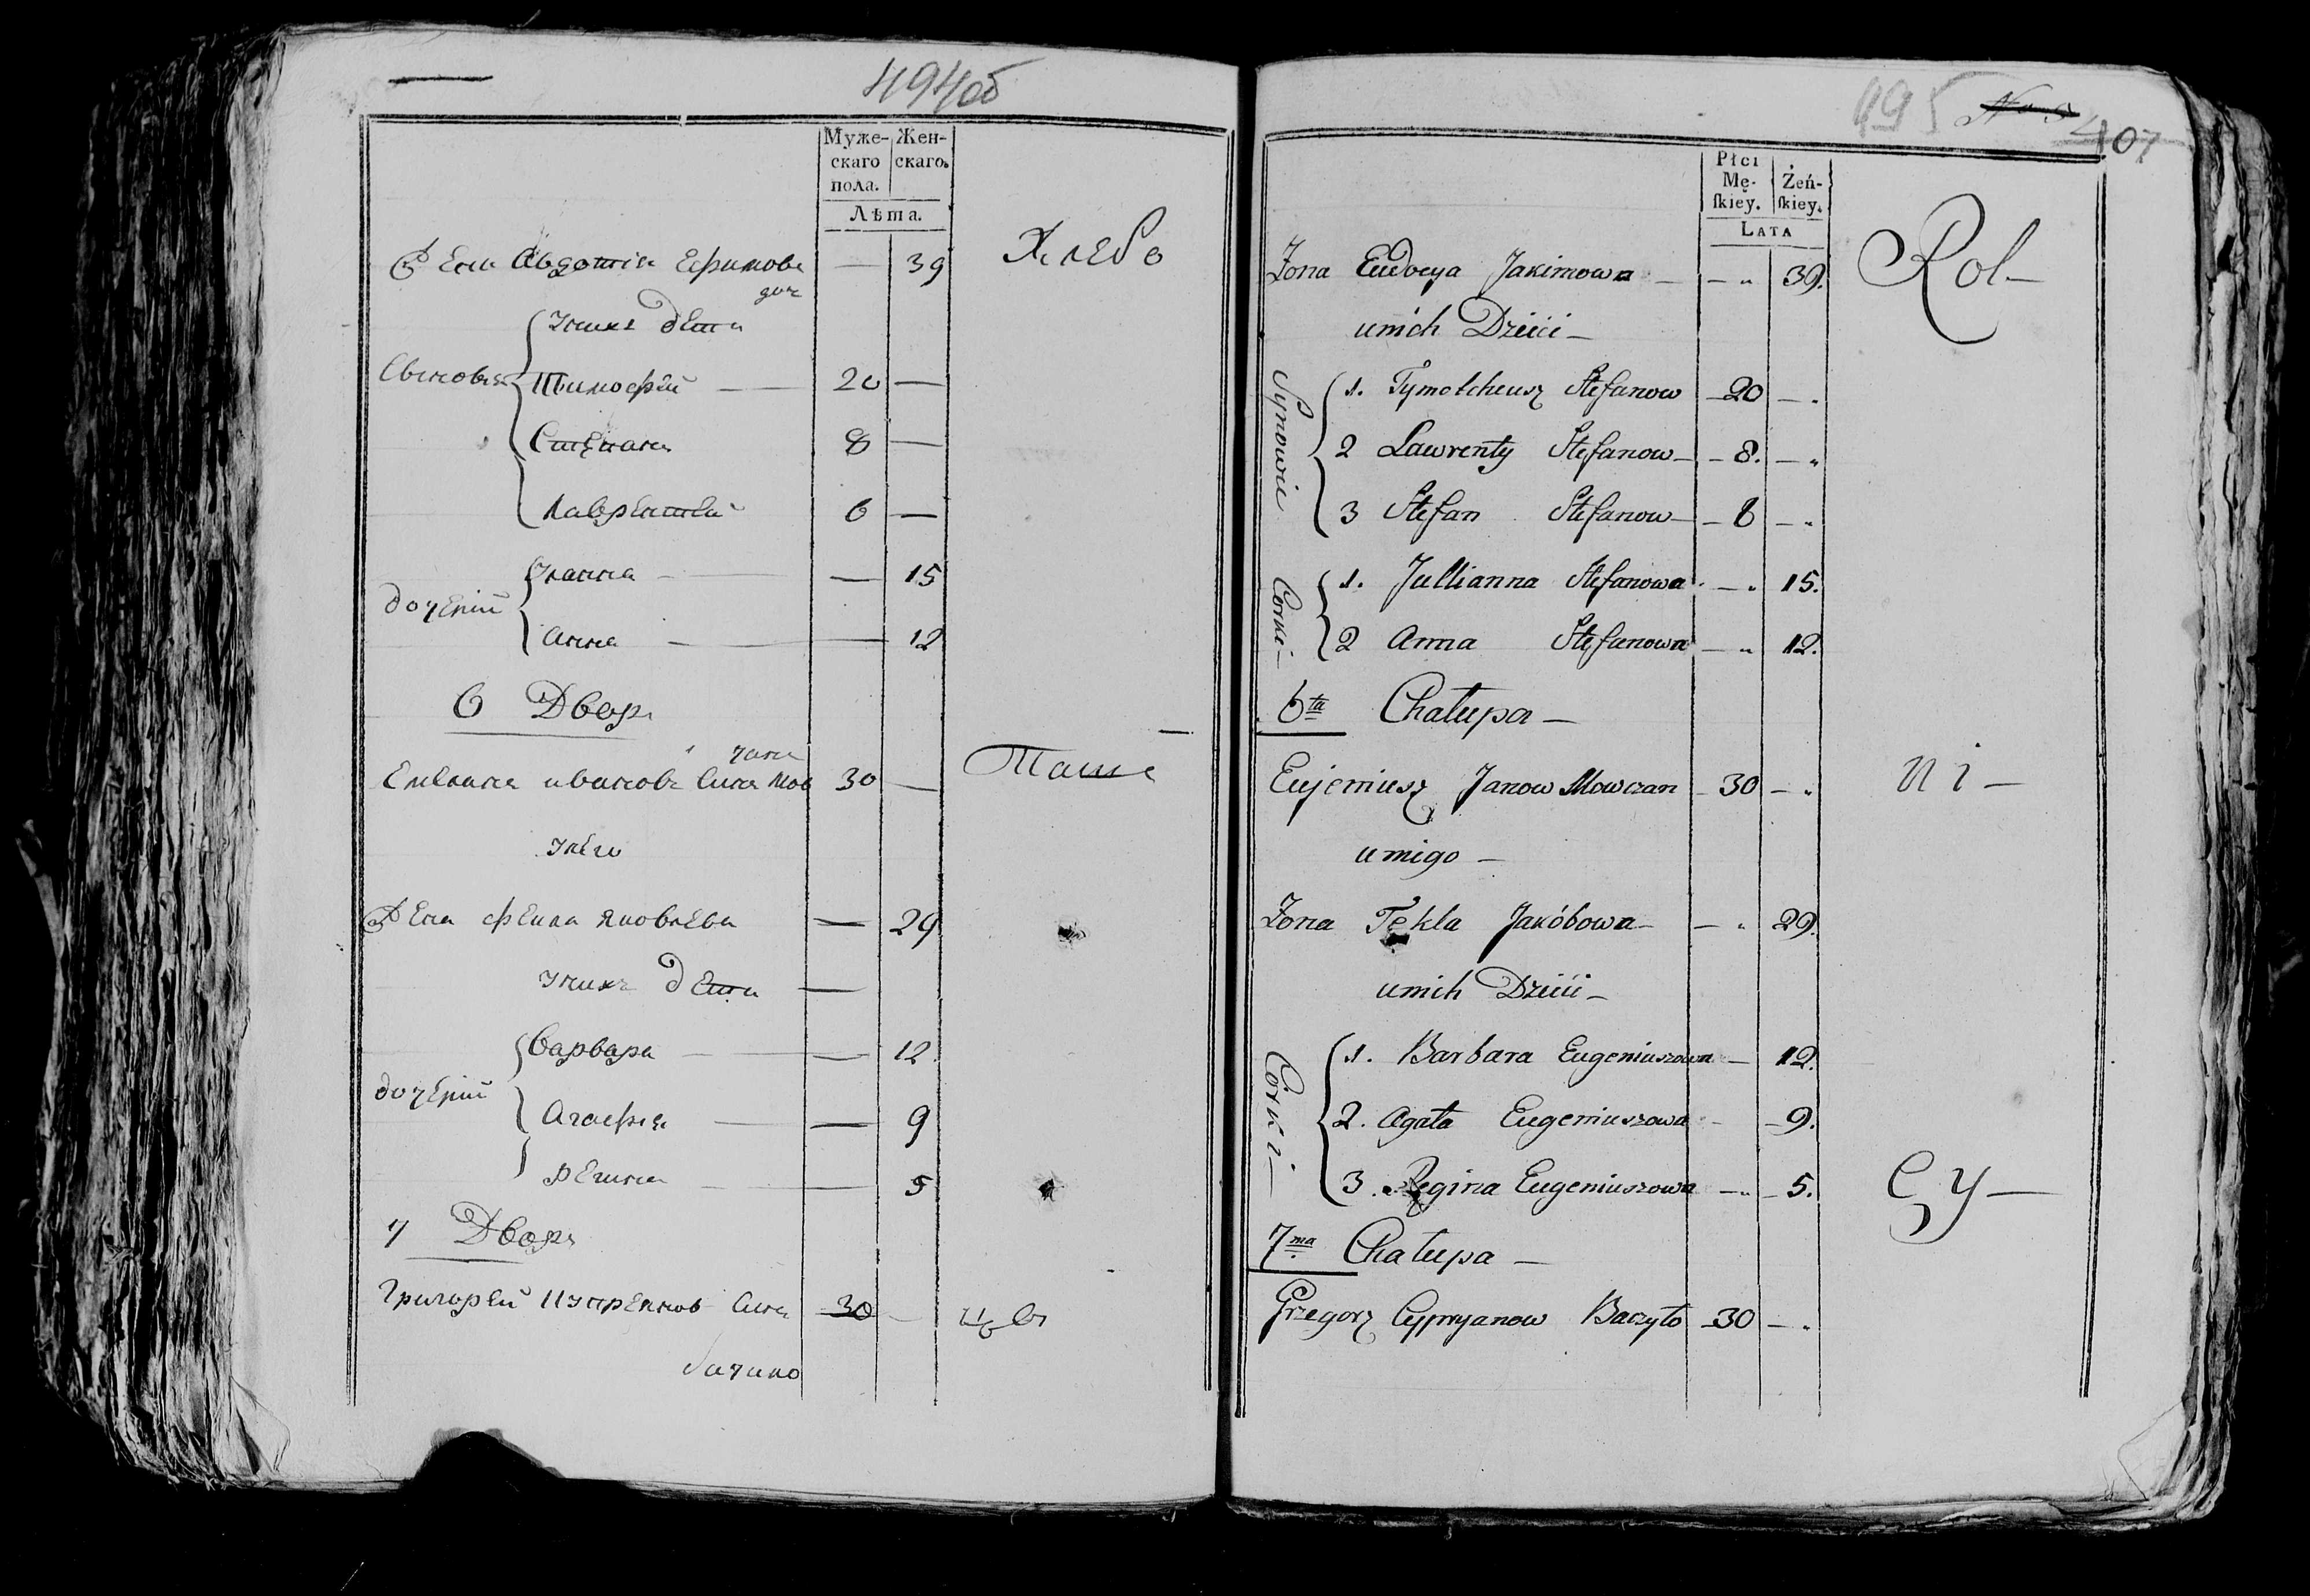 494об
Муже-
скаго
пола.
Жен-
скаго.
Лѣта.
Жена Авдотия Ефимова
доч
39
Хлебо
Унихъ дети
Сыновья
Тимофей 20
Степанъ 8
Лаврентей 6
дочерий
Улянна 15
Анна 12
6 Дворъ
чанъ
Емелиянъ ивановъ Сынъ Мов 30
Паше
Унего
Жена фекла Яковлева 29
Унихъ дети
дочерий
Варвара 12
Агафия 9
Регина 5
7 Дворъ
Григорей Куприянов Сынъ 30
цы
бачило
495
407
Płci
Mę-
ſkiey.
Żeń-
ſkiey.
Lata
Żona Eudocya Jakimowa 39.
Rol-
unich Dzieci
Synowie
1. Tymotheusz Stefanow 20
2 Lawrenty Stefanow 8.
3 Stefan Stefanow 6
Corki
1. Jullianna Stefanowa 15.
2 Anna Stefanowa 12.
6ta Chałupa
Eujeniusz Janow Mowczan 30
ni-
uniego
Żona Tekla Jakóbowa 29.
unich Dzieci
Córki
1. Barbara Eugeniuszowa 12.
2. Agata Eugeniuszowa 9.
3. Regina Eugeniuszowa 5.
cy-
7ma Chałupa
Grzegorz Cypryanow Baczyło 30